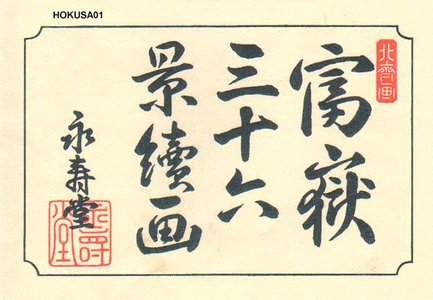 HOKUSA01
北斎画
富嶽
三十六
景續画
永寿堂
永寿堂